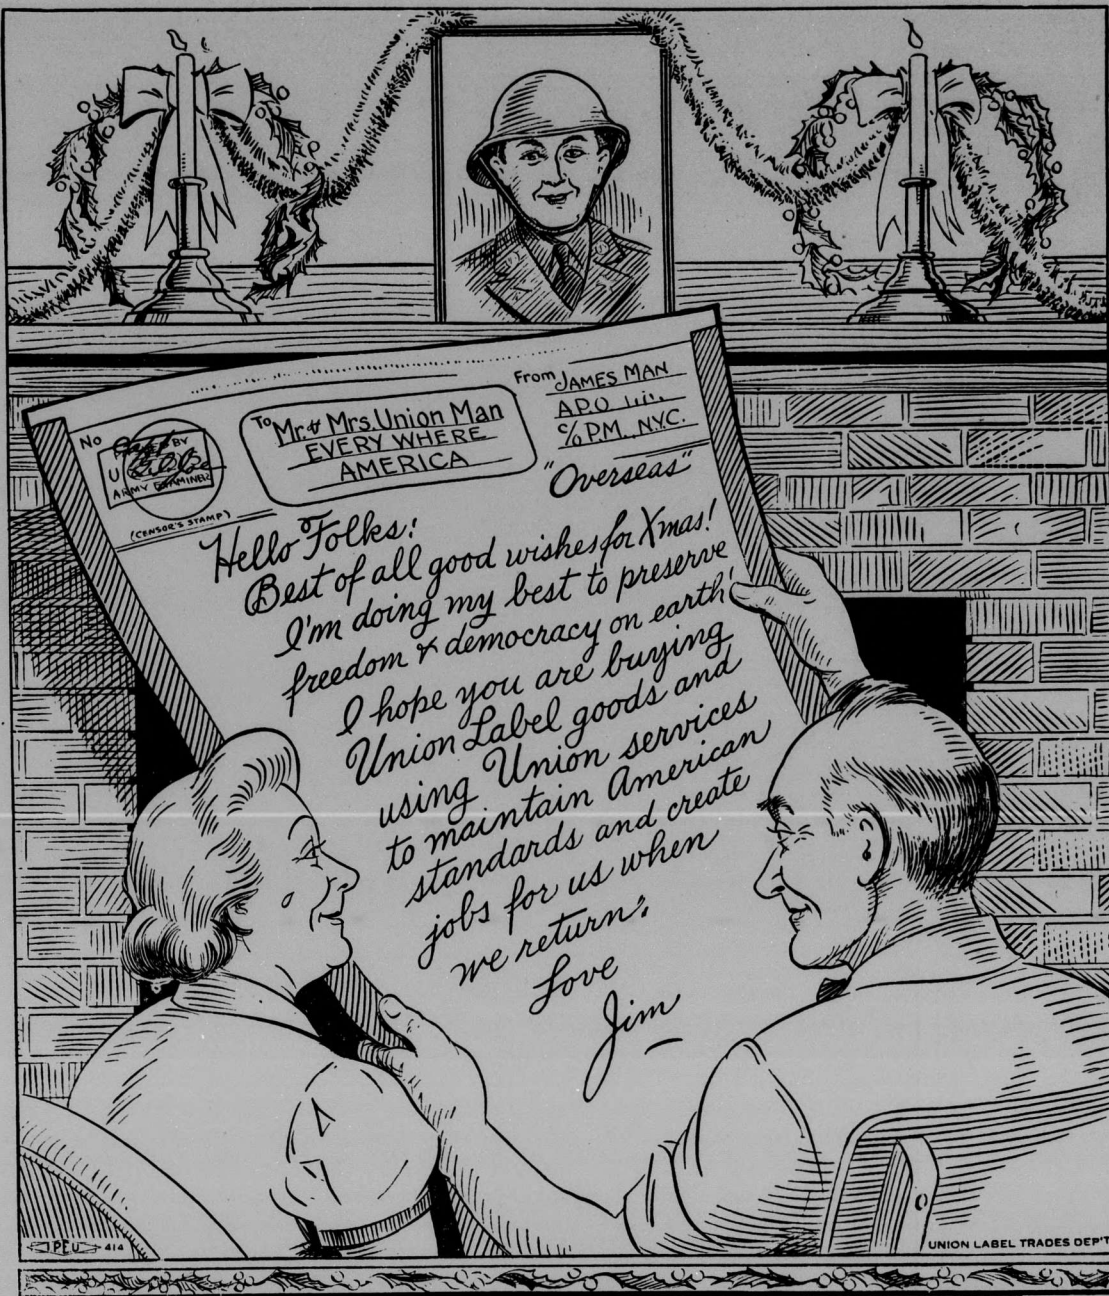 No
BY
U
ARMY EXAMINER
(CENSOR'S STAMP)
To Mr. & Mrs. Union Man
EVERY WHERE
AMERICA
From JAMES MAN
A.P.O.
c/o P.M., N.Y.C.
"Overseas"
Hello Folks:
Best of all good wishes for Xmas!
I'm doing my best to preserve
freedom & democracy on earth!
I hope you are buying
Union Label goods and
using Union services
to maintain American
standards and create
jobs for us when
we return.
Love
Jim
IPEU 414
UNION LABEL TRADES DEP'T